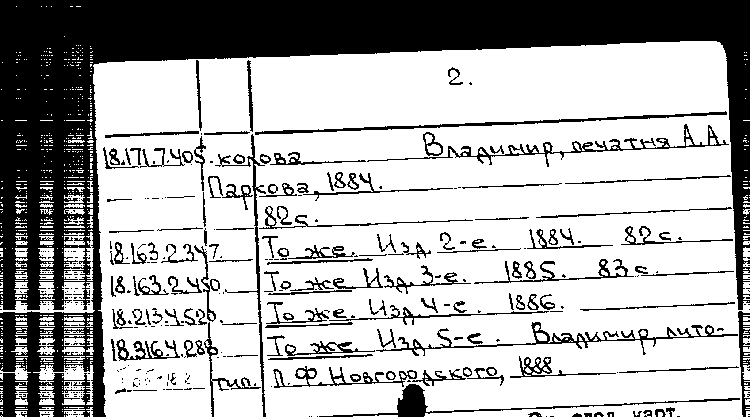 2.
18.171.7.405. кокова Владимир, печатня А.А.
Паркова, 1884.
82с.
18.163.2.347. То же. Изд. 2-е. 1884. 82с.
18.163.2.450. То же Изд. 3-е. 1885. 83с.
18.213.4.520. То же. Изд. 4-е. 1886.
18.316.4.288 То же. Изд. 5-е. Владимир, лито-
тип. П.Ф. Новгородского, 1888.